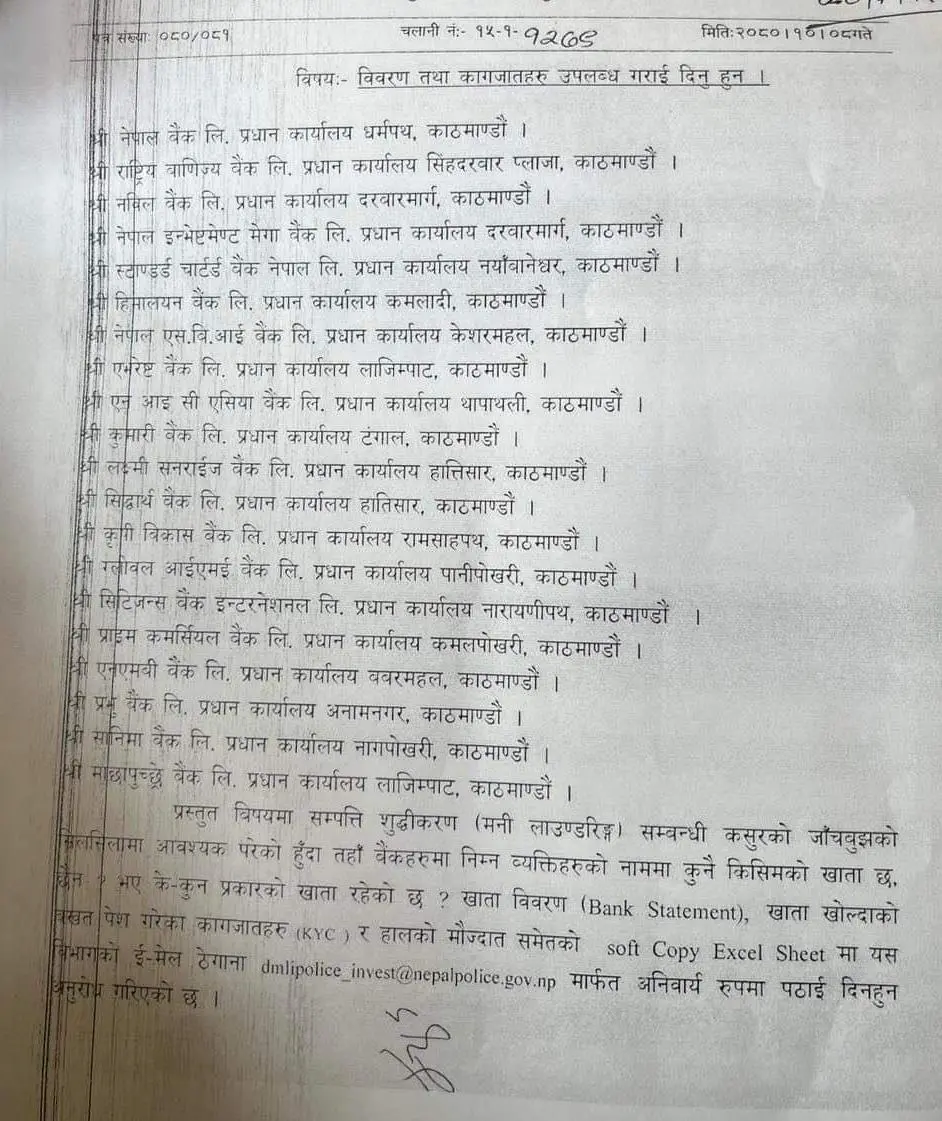 पत्र संख्याः ०८०/०८१ चलानी नं:- १५-१- मितिः२०८०।१०।०८गते
विषयः- विवरण तथा कागजातहरु उपलब्ध गराई दिनु हुन ।
श्री नेपाल बैंक लि. प्रधान कार्यालय धर्मपथ, काठमाण्डौं ।
श्री राष्ट्रिय वाणिज्य बैंक लि. प्रधान कार्यालय सिंहदरवार प्लाजा, काठमाण्डौं ।
श्री नविल बैंक लि. प्रधान कार्यालय दरवारमार्ग, काठमाण्डौं ।
श्री नेपाल इन्भेष्टमेण्ट मेगा बैंक लि. प्रधान कार्यालय दरवारमार्ग, काठमाण्डौं ।
श्री स्टाण्डर्ड चार्टर्ड बैंक नेपाल लि. प्रधान कार्यालय नयाँवानेश्वर, काठमाण्डौं ।
श्री हिमालयन बैंक लि. प्रधान कार्यालय कमलादी, काठमाण्डौं ।
श्री नेपाल एस.वि.आई बैंक लि. प्रधान कार्यालय केशरमहल, काठमाण्डौं ।
श्री एभरेष्ट बैंक लि. प्रधान कार्यालय लाजिम्पाट, काठमाण्डौं ।
श्री एन आइ सी एसिया बैंक लि. प्रधान कार्यालय थापाथली, काठमाण्डौं ।
श्री कुमारी बैंक लि. प्रधान कार्यालय टंगाल, काठमाण्डौं ।
श्री लक्ष्मी सनराईज बैंक लि. प्रधान कार्यालय हात्तिसार, काठमाण्डौं ।
श्री सिद्धार्थ बैंक लि. प्रधान कार्यालय हातिसार, काठमाण्डौं ।
श्री कृषी विकास बैंक लि. प्रधान कार्यालय रामसाहपथ, काठमाण्डौं ।
श्री ग्लोवल आईएमई बैंक लि. प्रधान कार्यालय पानीपोखरी, काठमाण्डौं ।
श्री सिटिजन्स बैंक इन्टरनेशनल लि. प्रधान कार्यालय नारायणीपथ, काठमाण्डौं ।
श्री प्राइम कमर्सियल बैंक लि. प्रधान कार्यालय कमलपोखरी, काठमाण्डौं ।
श्री एनएमवी बैंक लि. प्रधान कार्यालय बबरमहल, काठमाण्डौं ।
श्री प्रभु बैंक लि. प्रधान कार्यालय अनामनगर, काठमाण्डौं ।
श्री सानिमा बैंक लि. प्रधान कार्यालय नागपोखरी, काठमाण्डौं ।
श्री माछापुच्छ्रे बैंक लि. प्रधान कार्यालय लाजिम्पाट, काठमाण्डौं ।
प्रस्तुत विषयमा सम्पत्ति शुद्धीकरण (मनी लाउण्डरिङ्ग) सम्बन्धी कसुरको जाँचबुझको
सिलसिलामा आवश्यक परेको हुँदा तहाँ बैंकहरुमा निम्न व्यक्तिहरुको नाममा कुनै किसिमको खाता छ,
छैन ? भए के-कुन प्रकारको खाता रहेको छ ? खाता विवरण (Bank Statement), खाता खोल्दाको
बखत पेश गरेका कागजातहरु (KYC ) र हालको मौज्दात समेतको soft Copy Excel Sheet मा यस
विभागको ई-मेल ठेगाना dmlipolice_invest@nepalpolice.gov.np मार्फत अनिवार्य रुपमा पठाई दिनहुन
अनुरोध गरिएको छ ।